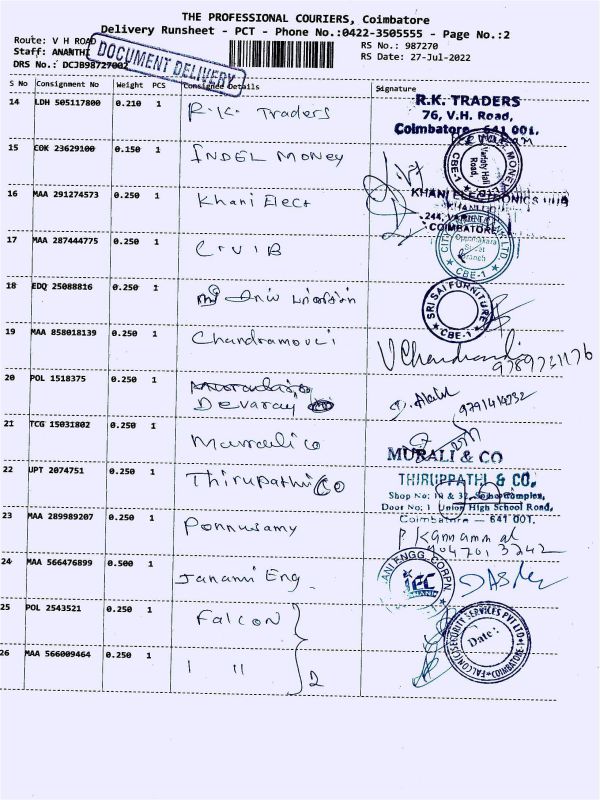 THE PROFESSIONAL COURIERS, Coimbatore
Delivery Runsheet - PCT - Phone No.:0422-3505555 - Page No.:2
Route: V H ROAD
RS No.: 987270
Staff: ANANTHI
RS Date: 27-Jul-2022
DRS No.: DCJB98727002
DOCUMENT DELIVERY
S No Consignment No Weight PCS Consignee Details Signature
14 LDH 505117800 0.210 1 R.K. Traders
R.K. TRADERS
76, V.H. Road,
Coimbatore - 641 001.
15 COK 23629100 0.150 1 INDEL MONEY
MONEY
Road,
CBE-1
16 MAA 291274573 0.250 1 Khani Elect
KHANI ELECTRONICS
244,
COIMBATORE
17 MAA 287444775 0.250 1 CIUIB
CITY LTD
Oppanakara
Street
Branch
CBE-1
18 EDQ 25088816 0.250 1
SRI SAI FURNITURE
CBE-1
19 MAA 858018139 0.250 1 Chandramouli
V Chandramouli
20 POL 1518375 0.250 1 Devaraj
21 TCG 15031802 0.250 1 Murali co
MURALI & CO
22 UPT 2074751 0.250 1 Thirupathi Co
THIRUPPATHI & CO,
Shop No: 19 & 32, Soho Complex,
Door No: 1 Union High School Road,
Coimbatore - 641 001.
23 MAA 289989207 0.250 1 Ponnusamy
P Kannammal
24 MAA 566476899 0.500 1 Janani Eng.
JANANI ENGG. CORPN.
25 POL 2543521 0.250 1 Falcon
FALCON SECURITY SERVICES PVT LTD
Date:
COIMBATORE
26 MAA 566009464 0.250 1 " 2